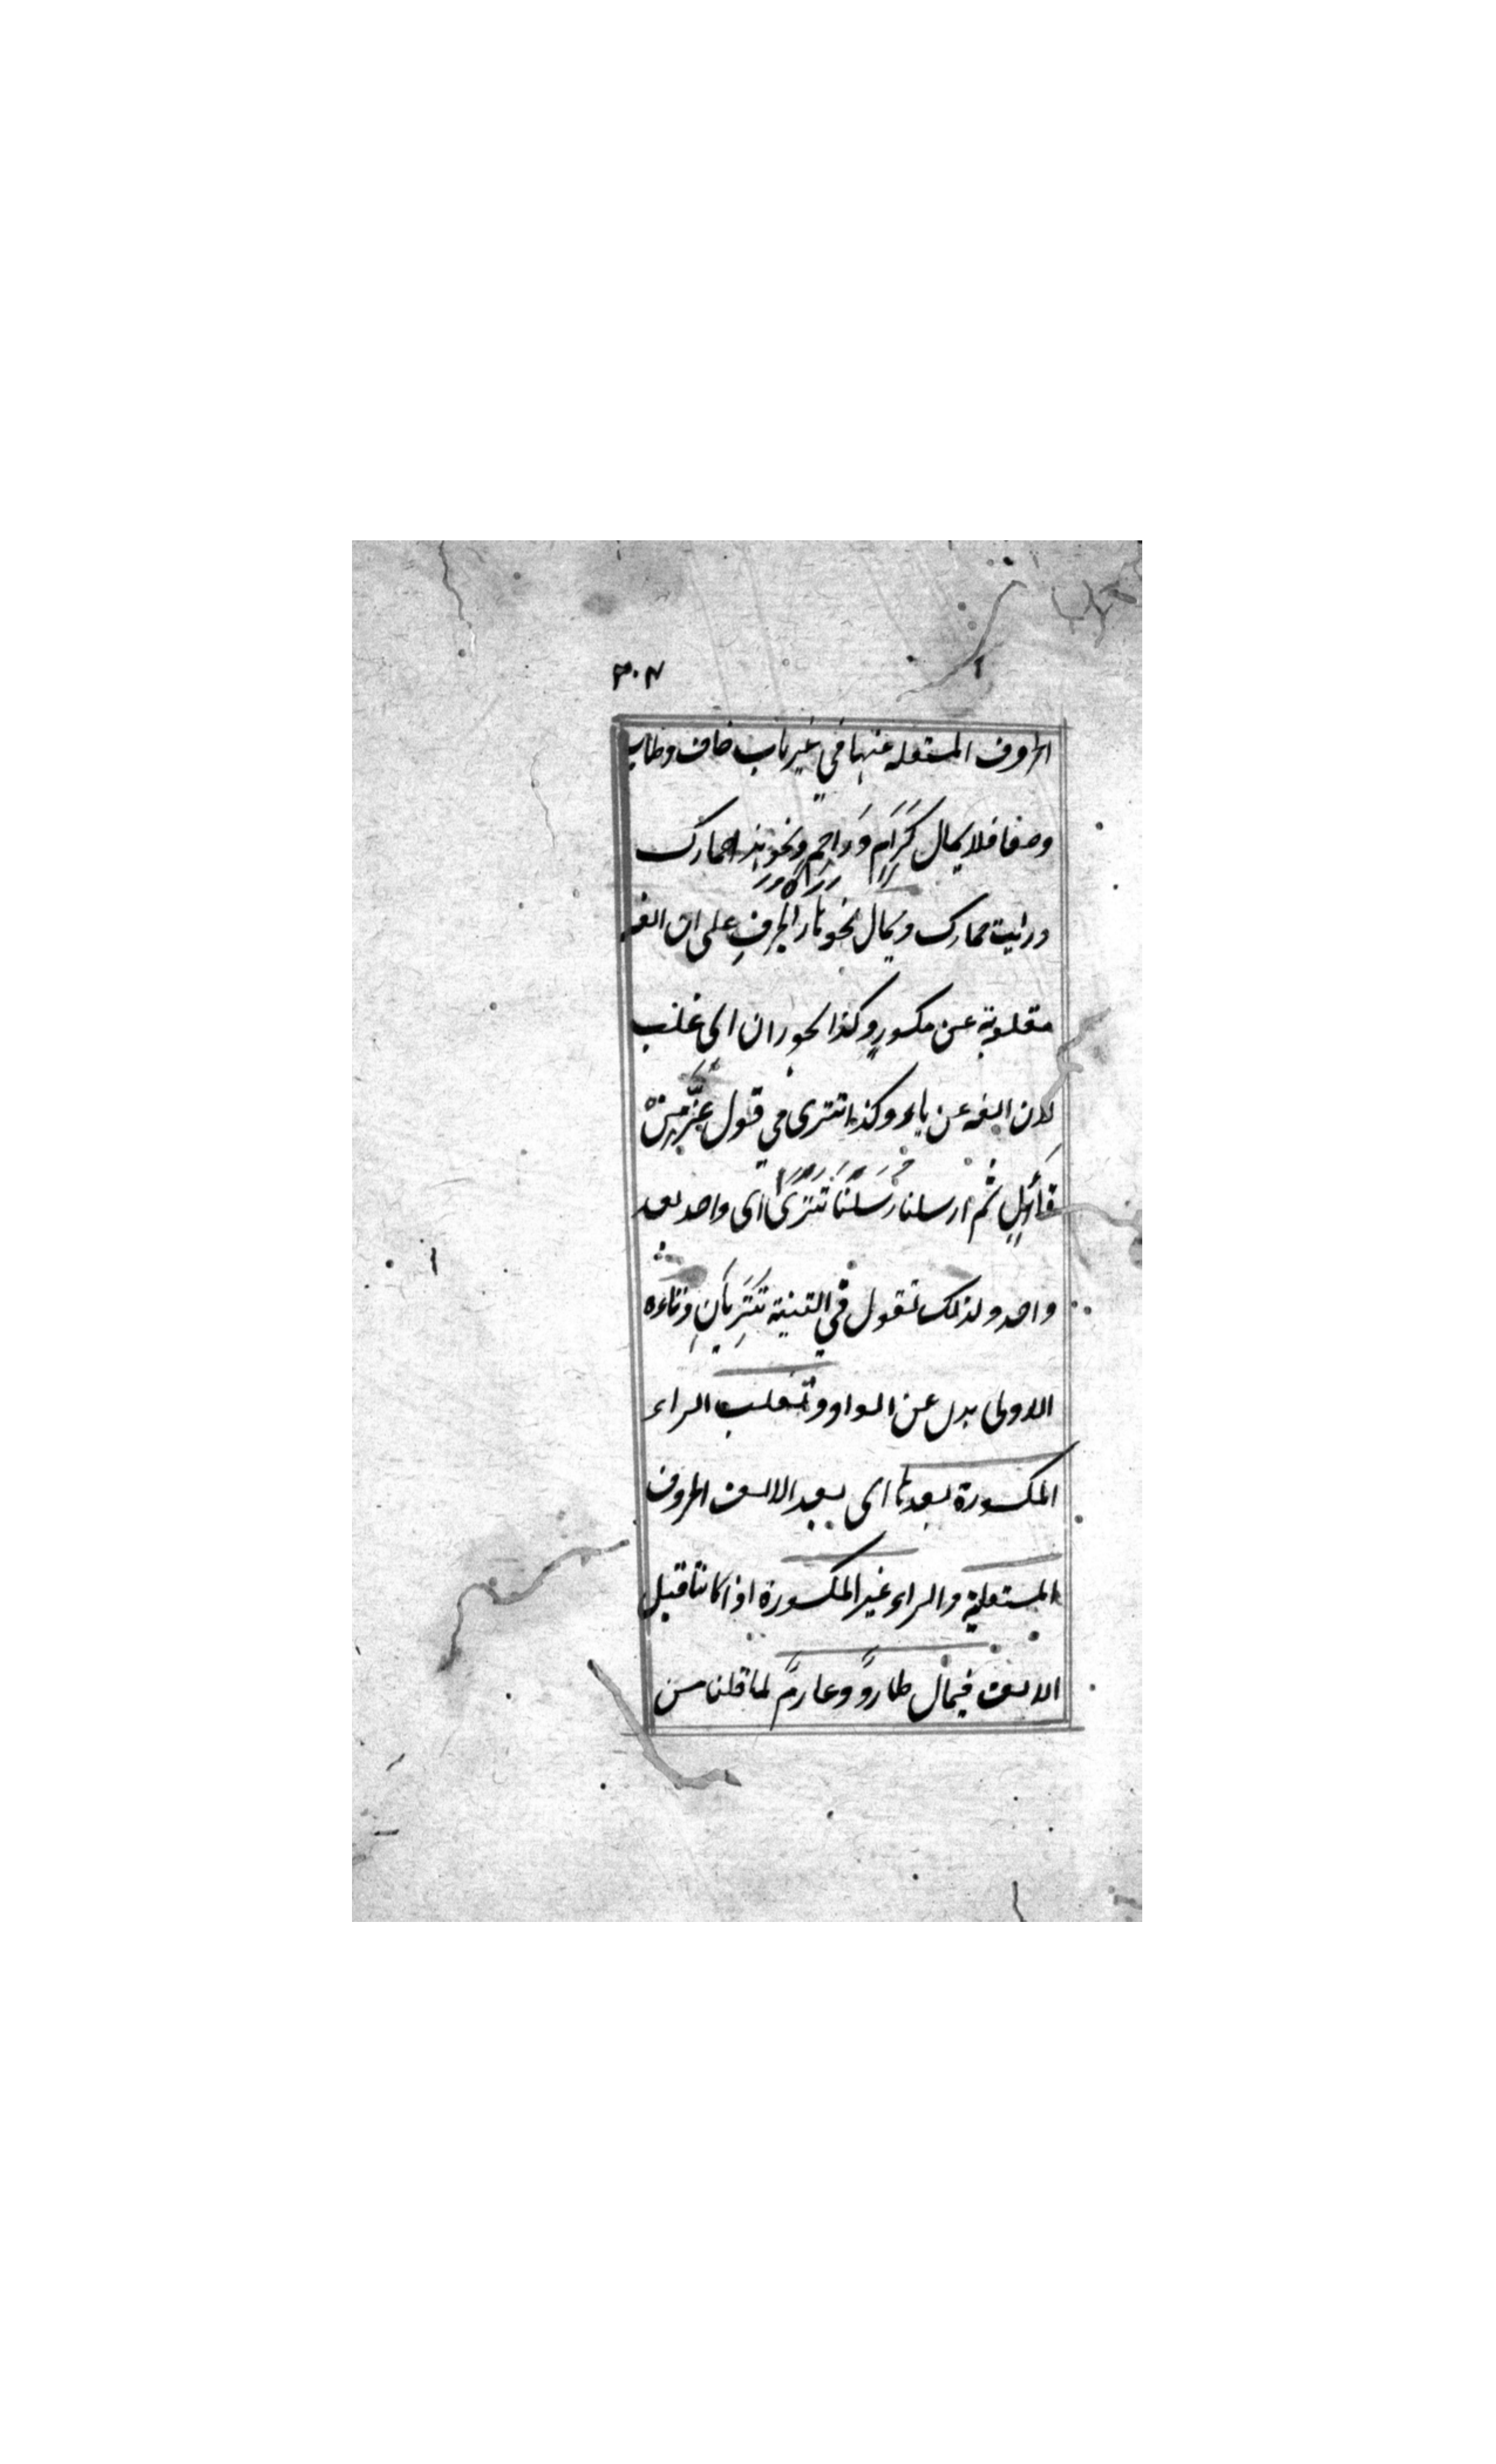 ٣٠٧
الحروف المستعلیه عنها في غیر باب خاف وطاب
وصفا فلا یمال كَرَامٍ و رَاحِمٍ ونحو هذا حمارك
ورایت حمارك ویمال نحو هار الجرفِ على ان الفه
مقلوبة عن مكسورٍ وكذا نحو ران اى غلب
لان الفه عن یاء وكذا تترى في قول عَزَّ مِنْ
قَائِلٍ ثم ارسلنا رُسُلَنَا تَتْرَىٰ اى واحد بعد
واحد ولذلك تقول في التثنیة تَتْرَیَانِ وتاءه
الاولى بدل عن الواو وتغلب الراء
المكسورة بعدها اى بعد الالف الحروف
المستعلیة والراء غیر المكسورة اذا كانتا قبل
الالف فیمال طاردٌ وعارمٌ لما قلنا من